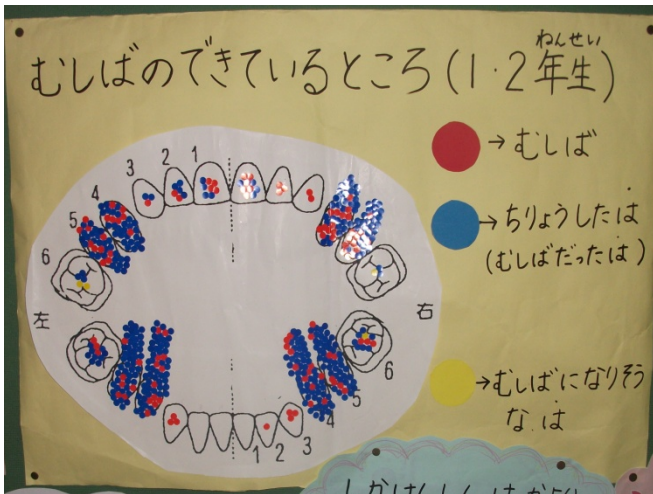 むしばのできているところ(1・2年生)
ねんせい
→むしば
→ちりょうしたは
(むしばだったは)
→むしばになりそう
な は
3 2 1
4
5
6
左
右
6
5
4
1 2 3